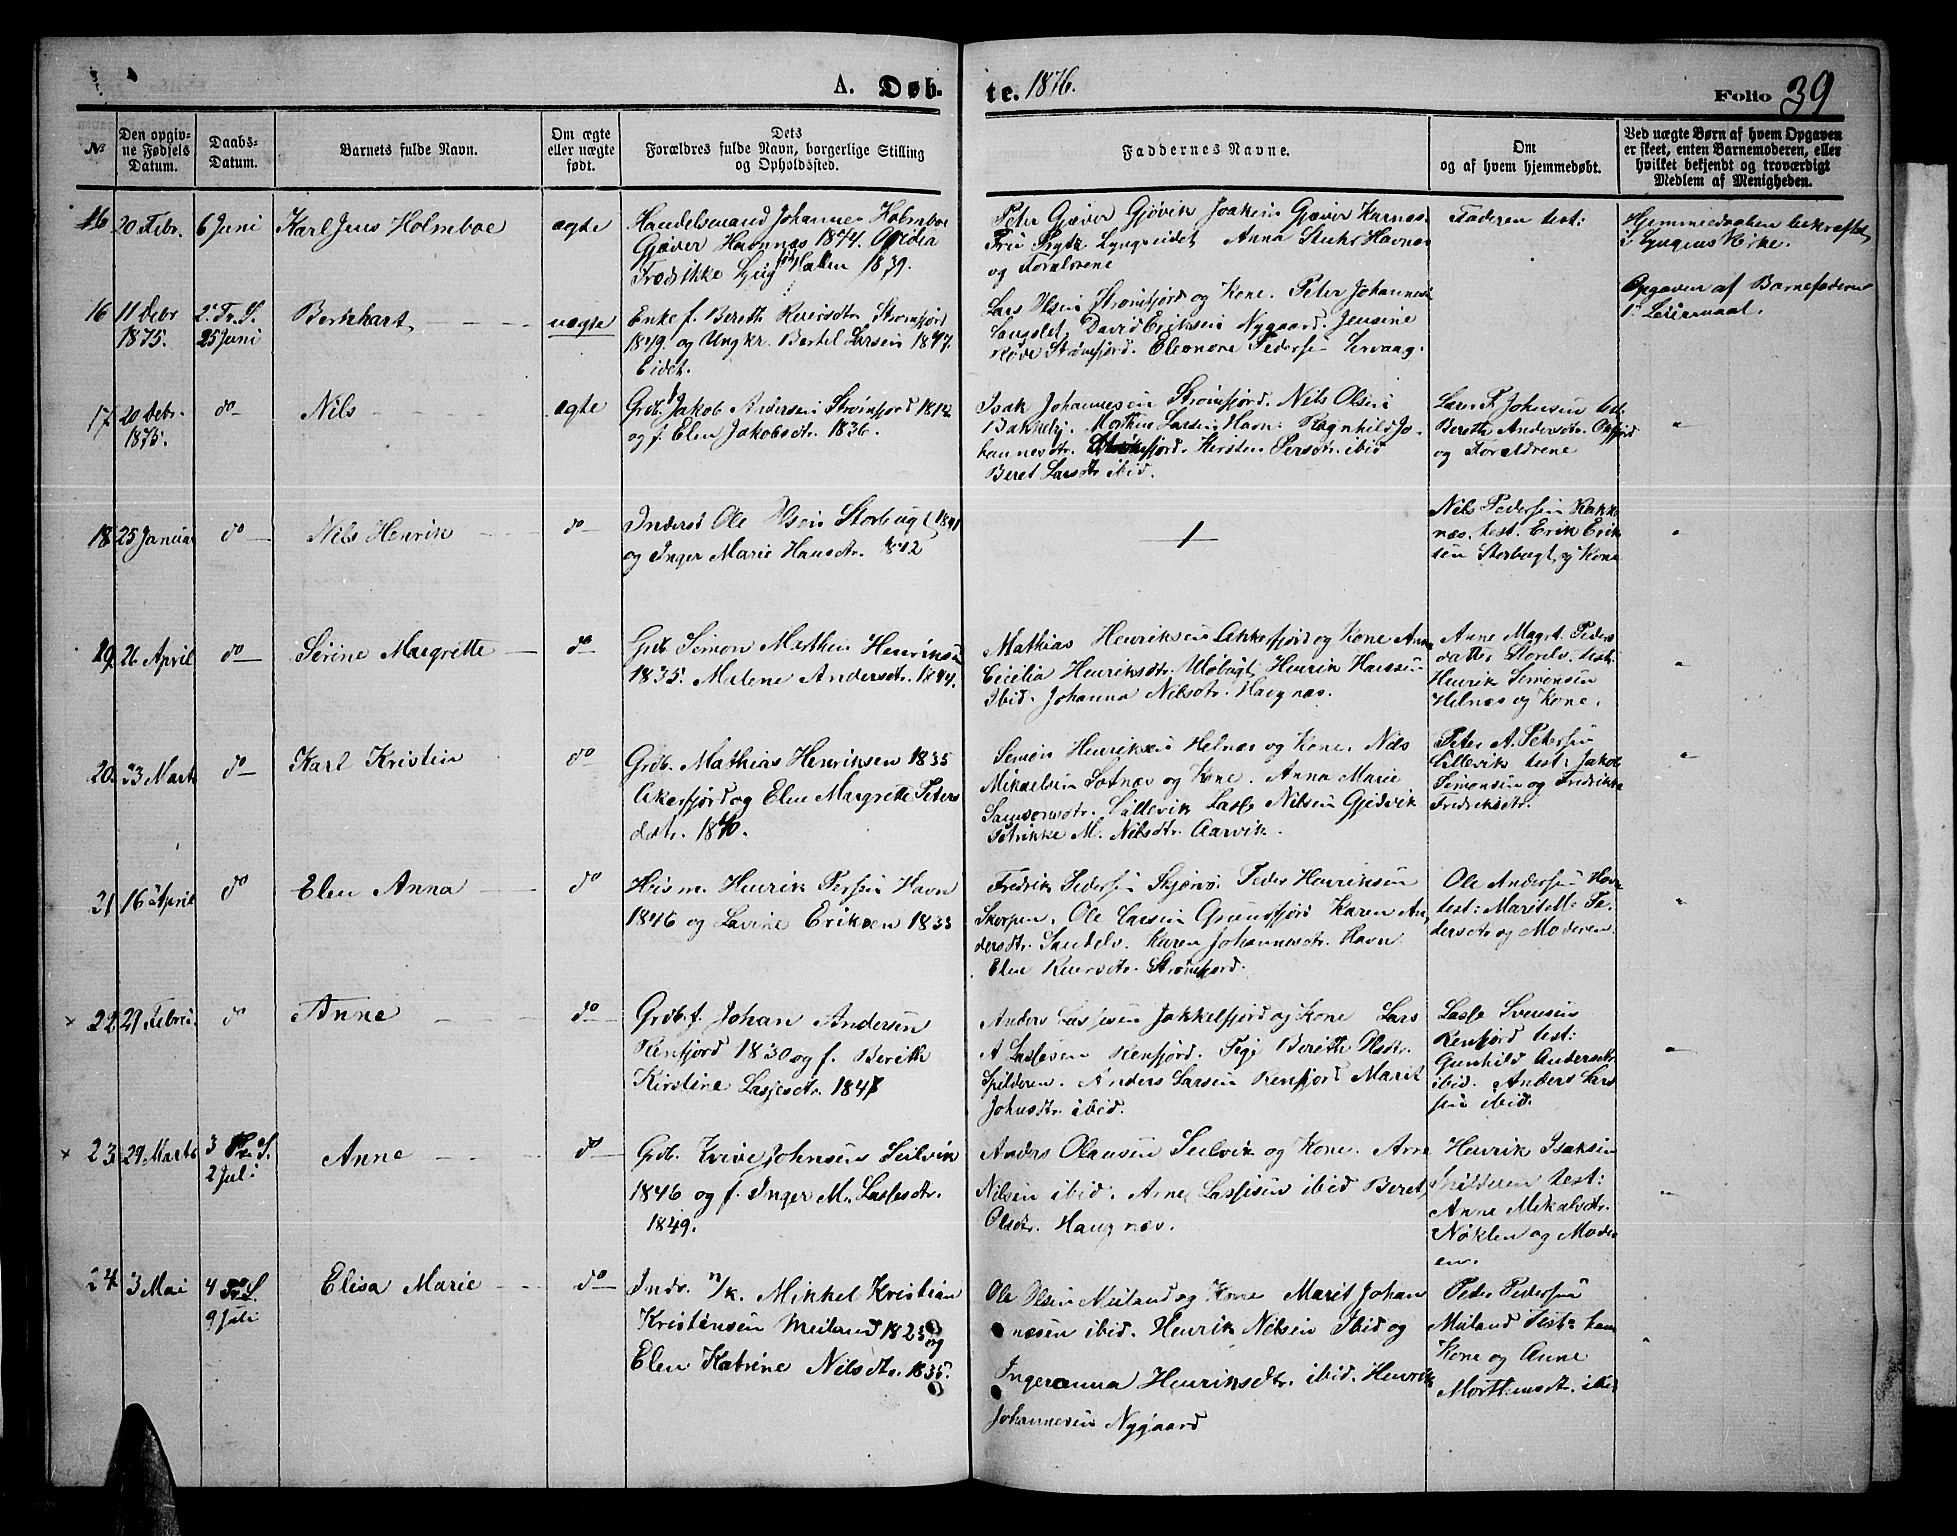 A. Døb-
te. 1876.
Folio 39
№
Den opgiv-
ne Fødsels
Datum.
Daabs-
Datum.
Barnets fulde Navn.
Om ægte
eller uægte
født.
Dets
Forældres fulde Navn, borgerlige Stilling
og Opholdssted.
Faddernes Navne.
Om
og af hvem hjemmedøbt.
Ved uægte Børn af hvem Opgaven
er skeet, enten Barnemoderen, eller
hvilket bekjendt og troværdigt
Medlem af Menigheden.
20 Febr. 6 Juni Karl Jens Holmboe ægte
Handelsmand Johannes Holmboe
Gjæver Havnnæs 1844.
Fredrikke
1839.
Peter Gjæver Gjøvik Joakim Gjæver
Lyngseidet Anna Havnæs
og Forældrene
Faderen test:
Hjemmedaaben bekræftet
i Lyngens Kirke.
16 11 Debr
1875.
25 Juni
Berthart uægte
Enke f. Bereth Reiersdtr. Strømfjord
1849 og Ungkr. Bertel Larsen 1847.
Eidet.
Lars Olsen Strømfjord og Kone. Peter Johannes
Langslet, David Eriksen Nygaard. Jensine
Strømfjord. Eleonore Pedersen
Opgaven af Barnefaderen
1ste Leiermaal.
17. 20 Debr.
1875.
do Nils ægte
Grdb. Jakob Andersen Strømfjord 1812
og f. Elen Jakobsdtr. 1836.
Isak Johannesen Strømfjord. Nils Olsen
Bakkeby. Morthen Larsen Havn. Ragnhild Jo-
hannesdtr. Kirsten Persdtr. ibid
Beret Larsdtr ibid.
Johnsen test.
Bereth Andersdtr.
og Forældrene
"
18. 25 Januar do Nils Henrik do
Inderst Ole Olsen Storbugt 1841
og Inger Marie Hansdtr. 1842
Nils Pedersen Rakke-
næs. test. Erik Erik-
sen Storbugt, og Kone
"
19. 26 April do Sørine Margrette do
Grdb. Simon Marthin Henriksen
1835. Malene Andersdtr. 1844.
Mathias Henriksen Akkefjord og Kone Anne
Cecilia Henriksdtr. Uløbugt, Henrik Hansen
Ibid. Johanna Nilsdtr. Haugnæs.
Anne Magrt. Peders
datter Storelv. test.
Henrik Simonsen
Helnæs og Kone.
"
20. 23 Marts do Karl Kristin do
Grdb. Mathias Henriksen 1835
Akesfjord og Elen Margrette Peters
datr. 1840.
Simon Henriksen Helnæs og Kone, Nils
Mikaelsen Sotnæs og Kone. Anna Marie
Samsonsdtr. Lillevik Lasse Nilsen Gjedvik
Petrikke M. Nilsdtr. Aarvik.
Peter A. Petersen
Lillevik test: Jakob
Simonsen og Fredrikke
Fredriksdtr.
"
21 16 April do Elen Anna do
Henrik Persen Havn
1846 og Lavine Eriksen 1835
Fredrik Pedersen Skjervø. Peder Henriksen
Skorpen. Ole Larsen Grundfjord Karen An-
dersdtr. Sandelv. Karen Johannesdtr. Havn
Elen Reiersdtr. Strømfjord.
Ole Andersen Havn
test: Marit M. Pe-
dersdtr og Moderen
"
x 22. 21 Febru. do Anne do
Grdb. f. Johan Andersen
Renfjord 1830 og f. Berith
Kirstine Lassesdtr. 1847
Anders Lassesen Jøkkelfjord og Kone Lars
A Lassesen Renfjord. Pige Berith Olsdtr.
Spilderen. Anders Larsen Renfjord Marit
Johnsdtr. ibid.
Lasse Svensen
Renfjord test:
Gunhild Andersdtr.
ibid. Anders Lars
sen ibid.
"
x 23. 29 Marts 3 Tr. S.
2 Juli
Anne do
Grdb. Kvive Johnsen Seilvik
1846 og f. Inger M. Lassesdtr.
1849.
Anders Olausen Seilvik og Kone. Arne
Nilsen ibid. Arne Lassesen ibid Beret
Olsdtr. Haugnæs.
Henrik Isaksen
Spilderen test:
Anne Mikalsdtr.
Nøklen og Moder-
en.
"
24. 3 Mai 4 Tr S.
9 Juli
Elisa Marie do
Indr. n/k. Mikkel Kristian
Kristensen Meiland 1825 og
Elen Katrine Nilsdtr. 1835.
Ole Olsen Meiland og Kone Marit Johan
nesen ibid. Henrik Nilsen Ibid og
Ingeranna Henriksdtr. ibid. Henrik
Johannesen Nygaard
Peder Pedersen
Meiland test: hans
Kone og Anne
Morthensdtr. ibid
"